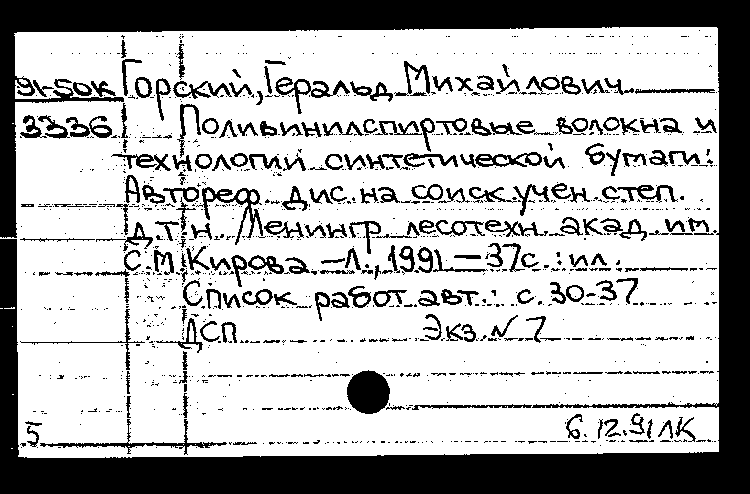 91-50К Горский, Геральд Михайлович
3336 Поливинилспиртовые волокна и
технологии синтетической бумаги:
Автореф. дис. на соиск. учен. степ.
д.т.н. /Ленингр. лесотехн. акад. им.
С.М. Кирова. –Л., 1991 – 37с. : ил.
Список работ авт.: с. 30-37
ДСП Экз. N 7
5 6.12.91 ЛК